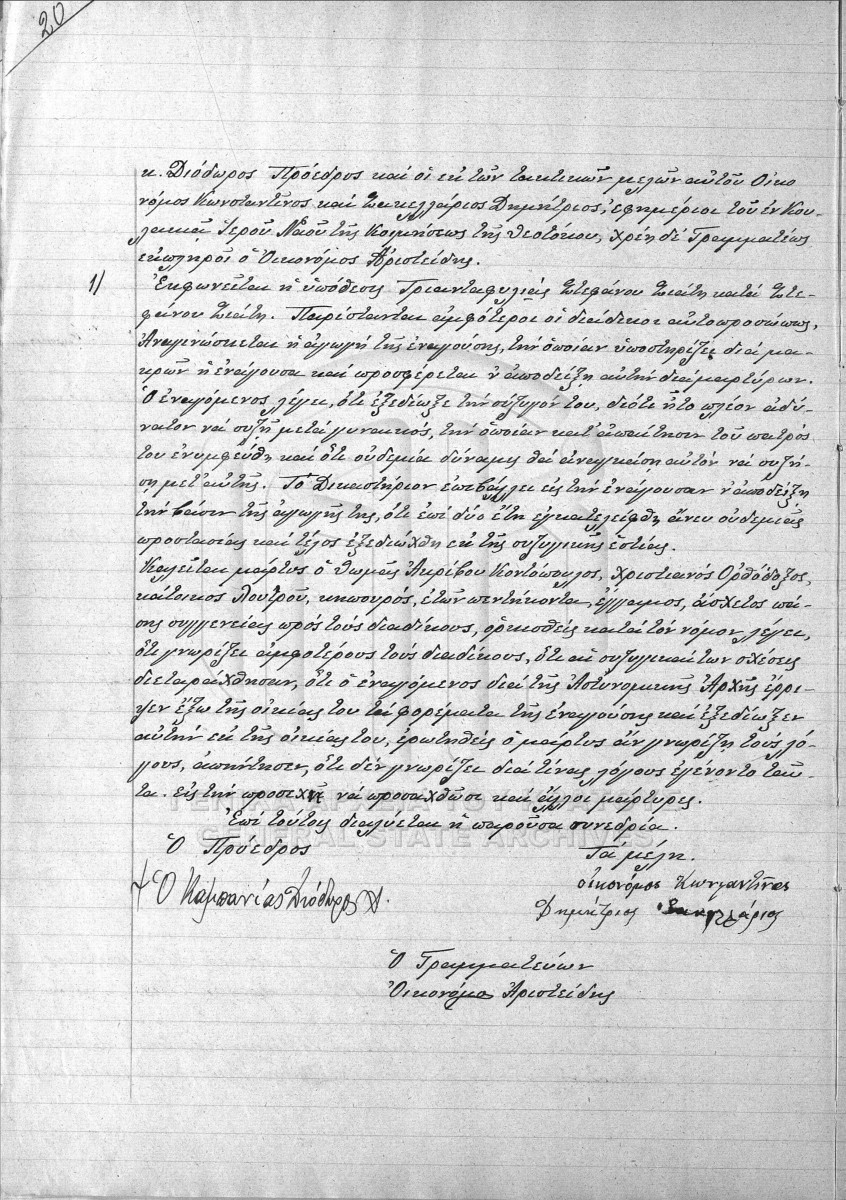 20
κ. Διόδωρος Πρόεδρος καί οἱ ἐκ τῶν τακτικῶν μελῶν αὐτοῦ Οἰκο
νόμος Κωνσταντῖνος καί Σακελλάριος Δημήτριος, ἐφημέριοι τοῦ ἐν Κου-
λακιᾷ Ἱεροῦ Ναοῦ τῆς Κοιμήσεως τῆς Θεοτόκου, χρέη δέ Γραμματέως
ἐκπληροῖ ὁ Οἰκονόμος Ἀριστείδης.
1) Ἐκφωνεῖται ἡ ὑπόθεσις Τριανταφυλιᾶς Στεφάνου Σιάτη κατά Στε-
φάνου Σιάτη. Παρίστανται ἀμφότεροι οἱ διάδικοι αὐτοπροσώπως,
Ἀναγινώσκεται ἡ ἀγωγή τῆς ἐναγούσης, τήν ὁποίαν ὑποστηρίζει διά μα-
κρῶν ἡ ἐνάγουσα καί προσφέρεται ν' ἀποδείξῃ αὐτήν διά μαρτύρων.
Ὁ ἐναγόμενος λέγει, ὅτι ἐξεδίωξε τήν σύζυγόν του, διότι ἦτο πλέον ἀδύ-
νατον νά συζῇ μετά γυναικός, τήν ὁποίαν κατ' ἀπαίτησιν τοῦ πατρός
του ἐνυμφεύθη καί ὅτι οὐδεμία δύναμις θά ἀναγκάσῃ αὐτόν νά συζή-
σῃ μετ' αὐτῆς. Τό Δικαστήριον ἐπιβάλλει εἰς τήν ἐνάγουσαν ν' ἀποδείξῃ
τήν βάσιν τῆς ἀγωγῆς της, ὅτι ἐπί δύο ἔτη ἐγκατελείφθη ἄνευ οὐδεμιᾶς
προστασίας καί τέλος ἐξεδιώχθη ἐκ τῆς συζυγικῆς ἑστίας.
Καλεῖται μάρτυς ὁ Θωμᾶς Ἀκρίβου Κοντόπουλος, Χριστιανός Ὀρθόδοξος,
κάτοικος Λουτροῦ, κηπουρός, ἐτῶν πεντήκοντα, ἔγγαμος, ἄσχετος πά-
σης συγγενείας πρός τούς διαδίκους, ὁρκισθείς κατά τόν νόμον λέγει,
ὅτι γνωρίζει ἀμφοτέρους τούς διαδίκους, ὅτι αἱ συζυγικαί των σχέσεις
διεταράχθησαν, ὅτι ὁ ἐναγόμενος διά τῆς Ἀστυνομικῆς Ἀρχῆς ἔρρι-
ψεν ἔξω τῆς οἰκίας του τά φορέματα τῆς ἐναγούσης καί ἐξεδίωξεν
αὐτήν ἐκ τῆς οἰκίας του, ἐρωτηθείς ὁ μάρτυς ἄν γνωρίζῃ τούς λό-
γους, ἀπήντησεν, ὅτι δέν γνωρίζει διά τίνας λόγους ἐγένοντο ταῦ-
τα. εἰς τήν προσεχῆ νά προσαχθῶσι καί ἄλλοι μάρτυρες.
Ἐπί τούτοις διαλύεται ἡ παροῦσα συνεδρία.
Ὁ Πρόεδρος Τά μέλη.
+ Ὁ Καμπανίας Διόδωρος Οἰκονόμος Κωνσταντῖνος
Δημήτριος Σακελλάριος
Ὁ Γραμματεύων
Οἰκονόμος Ἀριστείδης
ΓΕΝΙΚΑ ΑΡΧΕΙΑ ΤΟΥ ΚΡΑΤΟΥΣ
GENERAL STATE ARCHIVES